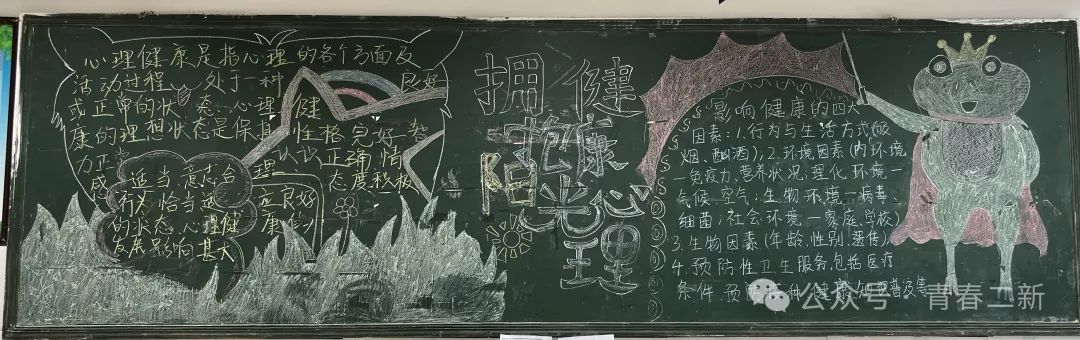 心理健康是指心理的各个方面及
活动过程、处于一种 良好
或正常的状态、心理健
康的理想状态是保 性格完好、
力正常 认识正确、情
感适当、意志合 态度积极
理、行为恰当、适应良好
的状态、心理健康的
发展影响甚大
拥抱阳光
健康心理
影响健康的四大
因素:1.行为与生活方式(吸
烟、酗酒),2.环境因素(内环境
一免疫力、营养状况;理化环境一
气候、空气;生物环境一病毒、
细菌;社会环境一家庭、学校)
3.生物因素(年龄、性别、遗传)
4.预防性卫生服务,包括医疗
条件、预 种、健 知 普及等
公众号 青春二新